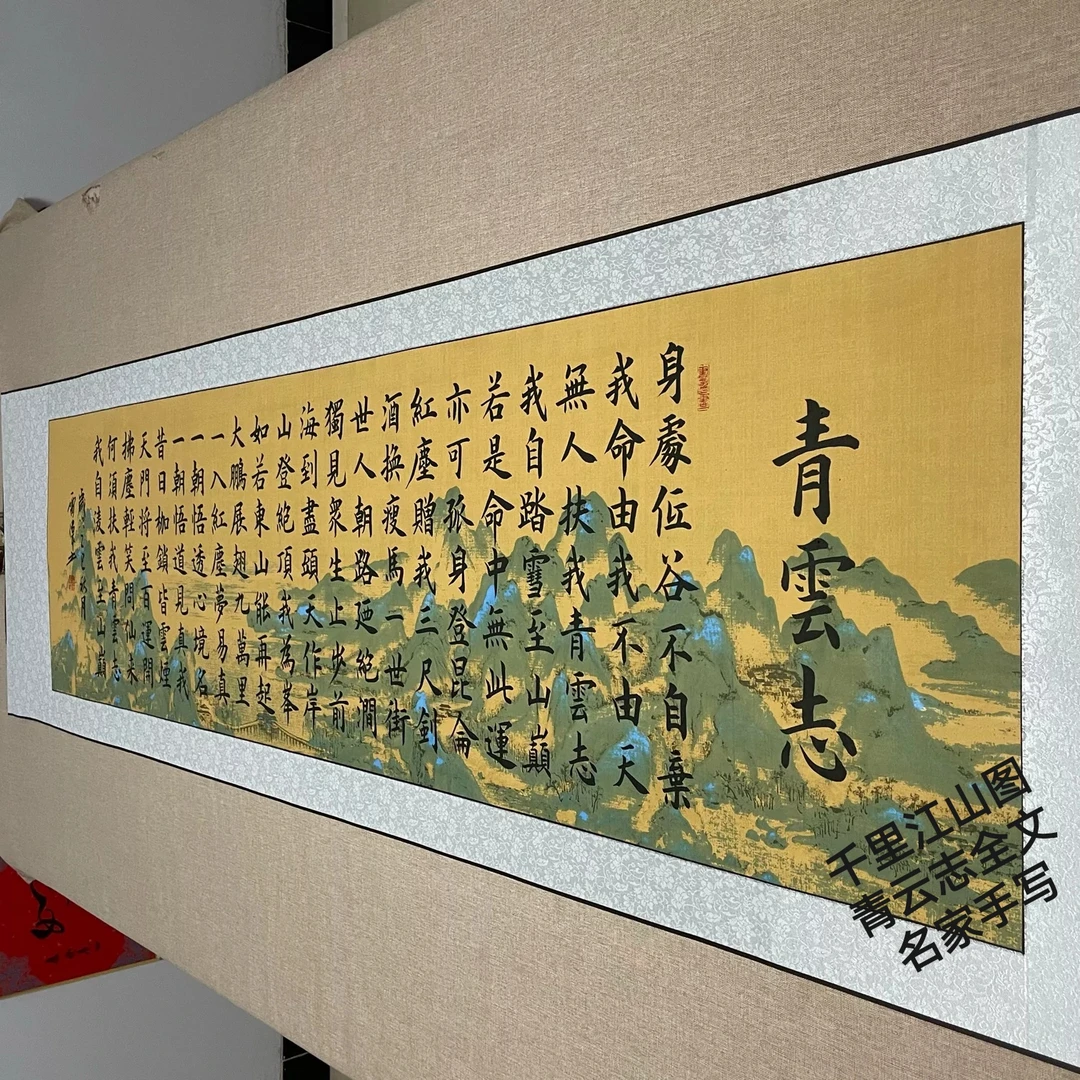 青雲志
身處低谷不自棄
我命由我不由天
無人扶我青雲志
我自踏雪至山巔
若是命中無此運
亦可孤身登昆侖
紅塵贈我三尺劍
酒換瘦馬一世街
世人朝路絕澗
獨見衆生止步前
海到盡頭天作岸
山登絕頂我為峯
如若東山能再起
大鵬展翅九萬里
一入紅塵夢易真
一朝悟透心境名
一朝悟道見真我
昔日枷鎖皆雲煙
天門將至百運開
拂塵輕笑問仙来
何須扶我青雲志
我自淩雲至山巔
千里江山图
青云志全文
名家手写